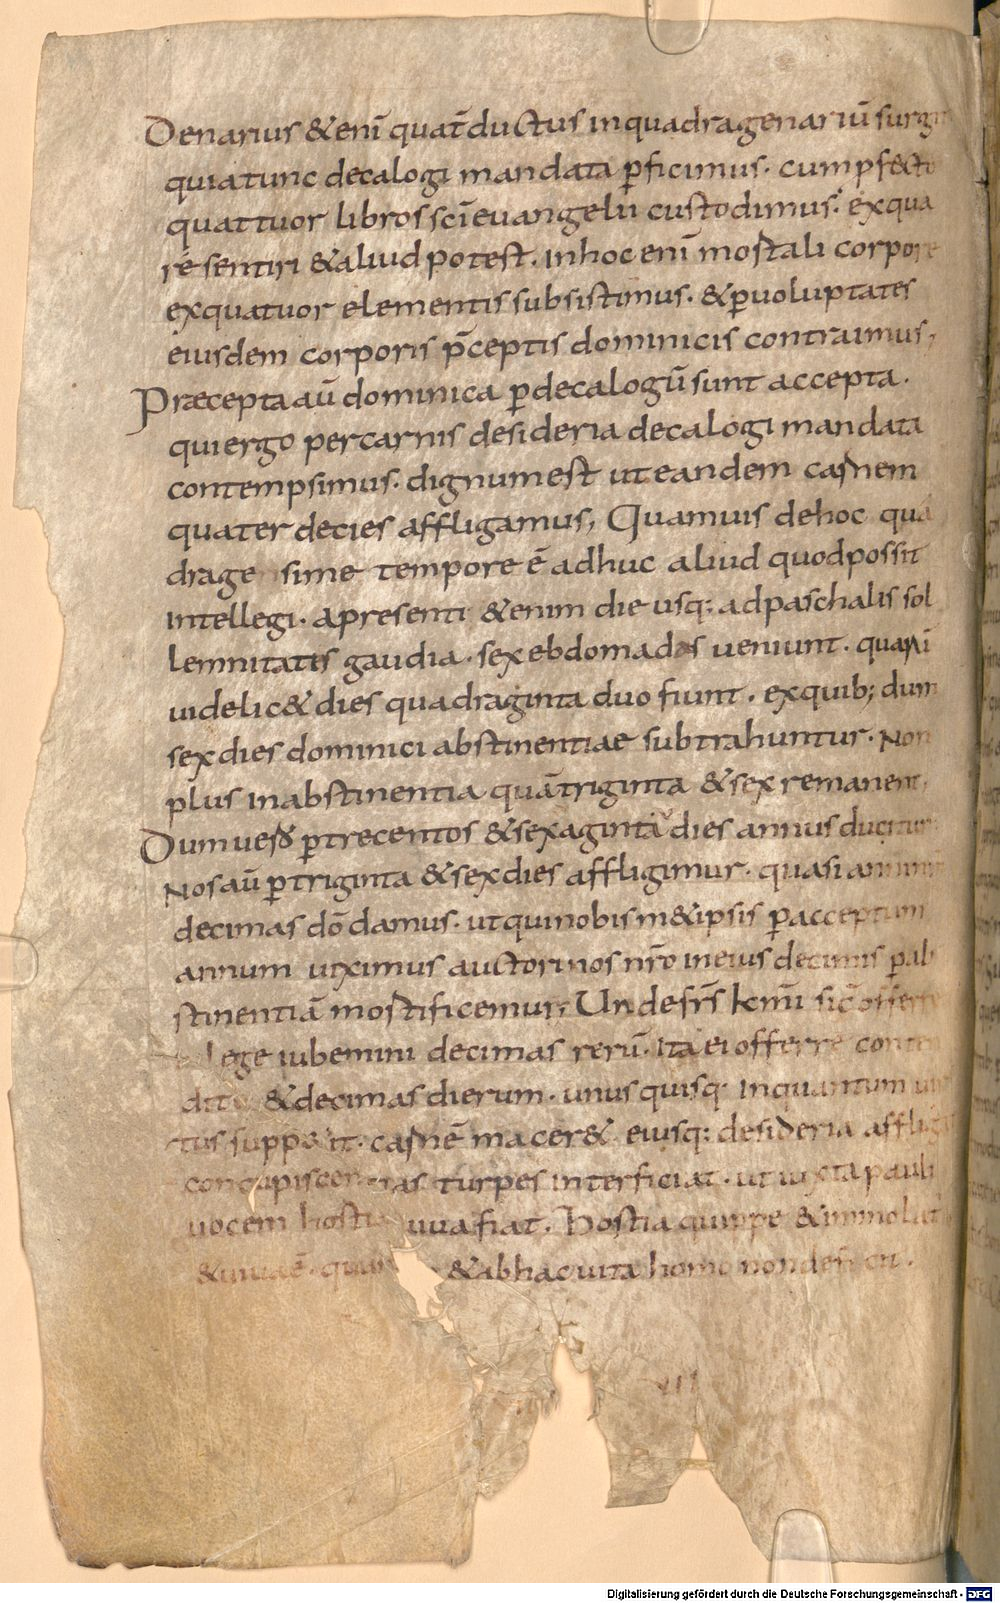 Denarius &enī quat̄ ductus inquadragenariū surgit
quiatunc decalogi mandata p̄ficimus. cumpf&cto
quattuor libros sc̄i euangelii custodimus. exqua
re sentiri &aliud potest. Inhoc enī mortali corpore
exquatuor elementis subsistimus. &p̄uoluptates
eiusdem corporis p̄ceptis dominicis contraimus;
Præcepta aū dominica p̄decalogū sunt accepta.
quiergo percarnis desideria decalogi mandata
contempsimus. dignum est uteandem carnem
quater decies affligamus; Quamuis dehoc qua
drage sime tempore ē adhuc aliud quodpossit
Intellegi. apresenti &enim die usq: adpaschalis sol
lemnitatis gaudia. sex ebdomadas ueniunt. quarū
uidelic& dies quadraginta duo fiunt. exquib; dum
sex dies dominici abstinentiae subtrahuntur. Non
plus inabstinentia quātriginta &sex remanent;
Dum uero p̄trecentos &sexaginta dies annus ducitur
Nos aū p̄triginta &sex dies affligimur. quasi anni nr̄i
decimas dō damus. utquinobis m&ipsis p̄acceptum
annum uiximus auctori nos nr̄o ineius decimis p̄ab
stinentiā mortificemur; Unde fr̄s kmī sic̄ offerre
lege iubemini decimas rerū. Ita ei offerre conten
dite &decimas dierum. unus quisq: Inquantum uir
tus supp&it. carnē macer& eiusq: desideria affligat
concupiscentias turpes interficiat. ut iuxta pauli
uocem hostia uiua fiat. Hostia quippe &immolat
&uiua ē. quia &abhac uita homo non deficit.
Digitalisierung gefördert durch die Deutsche Forschungsgemeinschaft - DFG